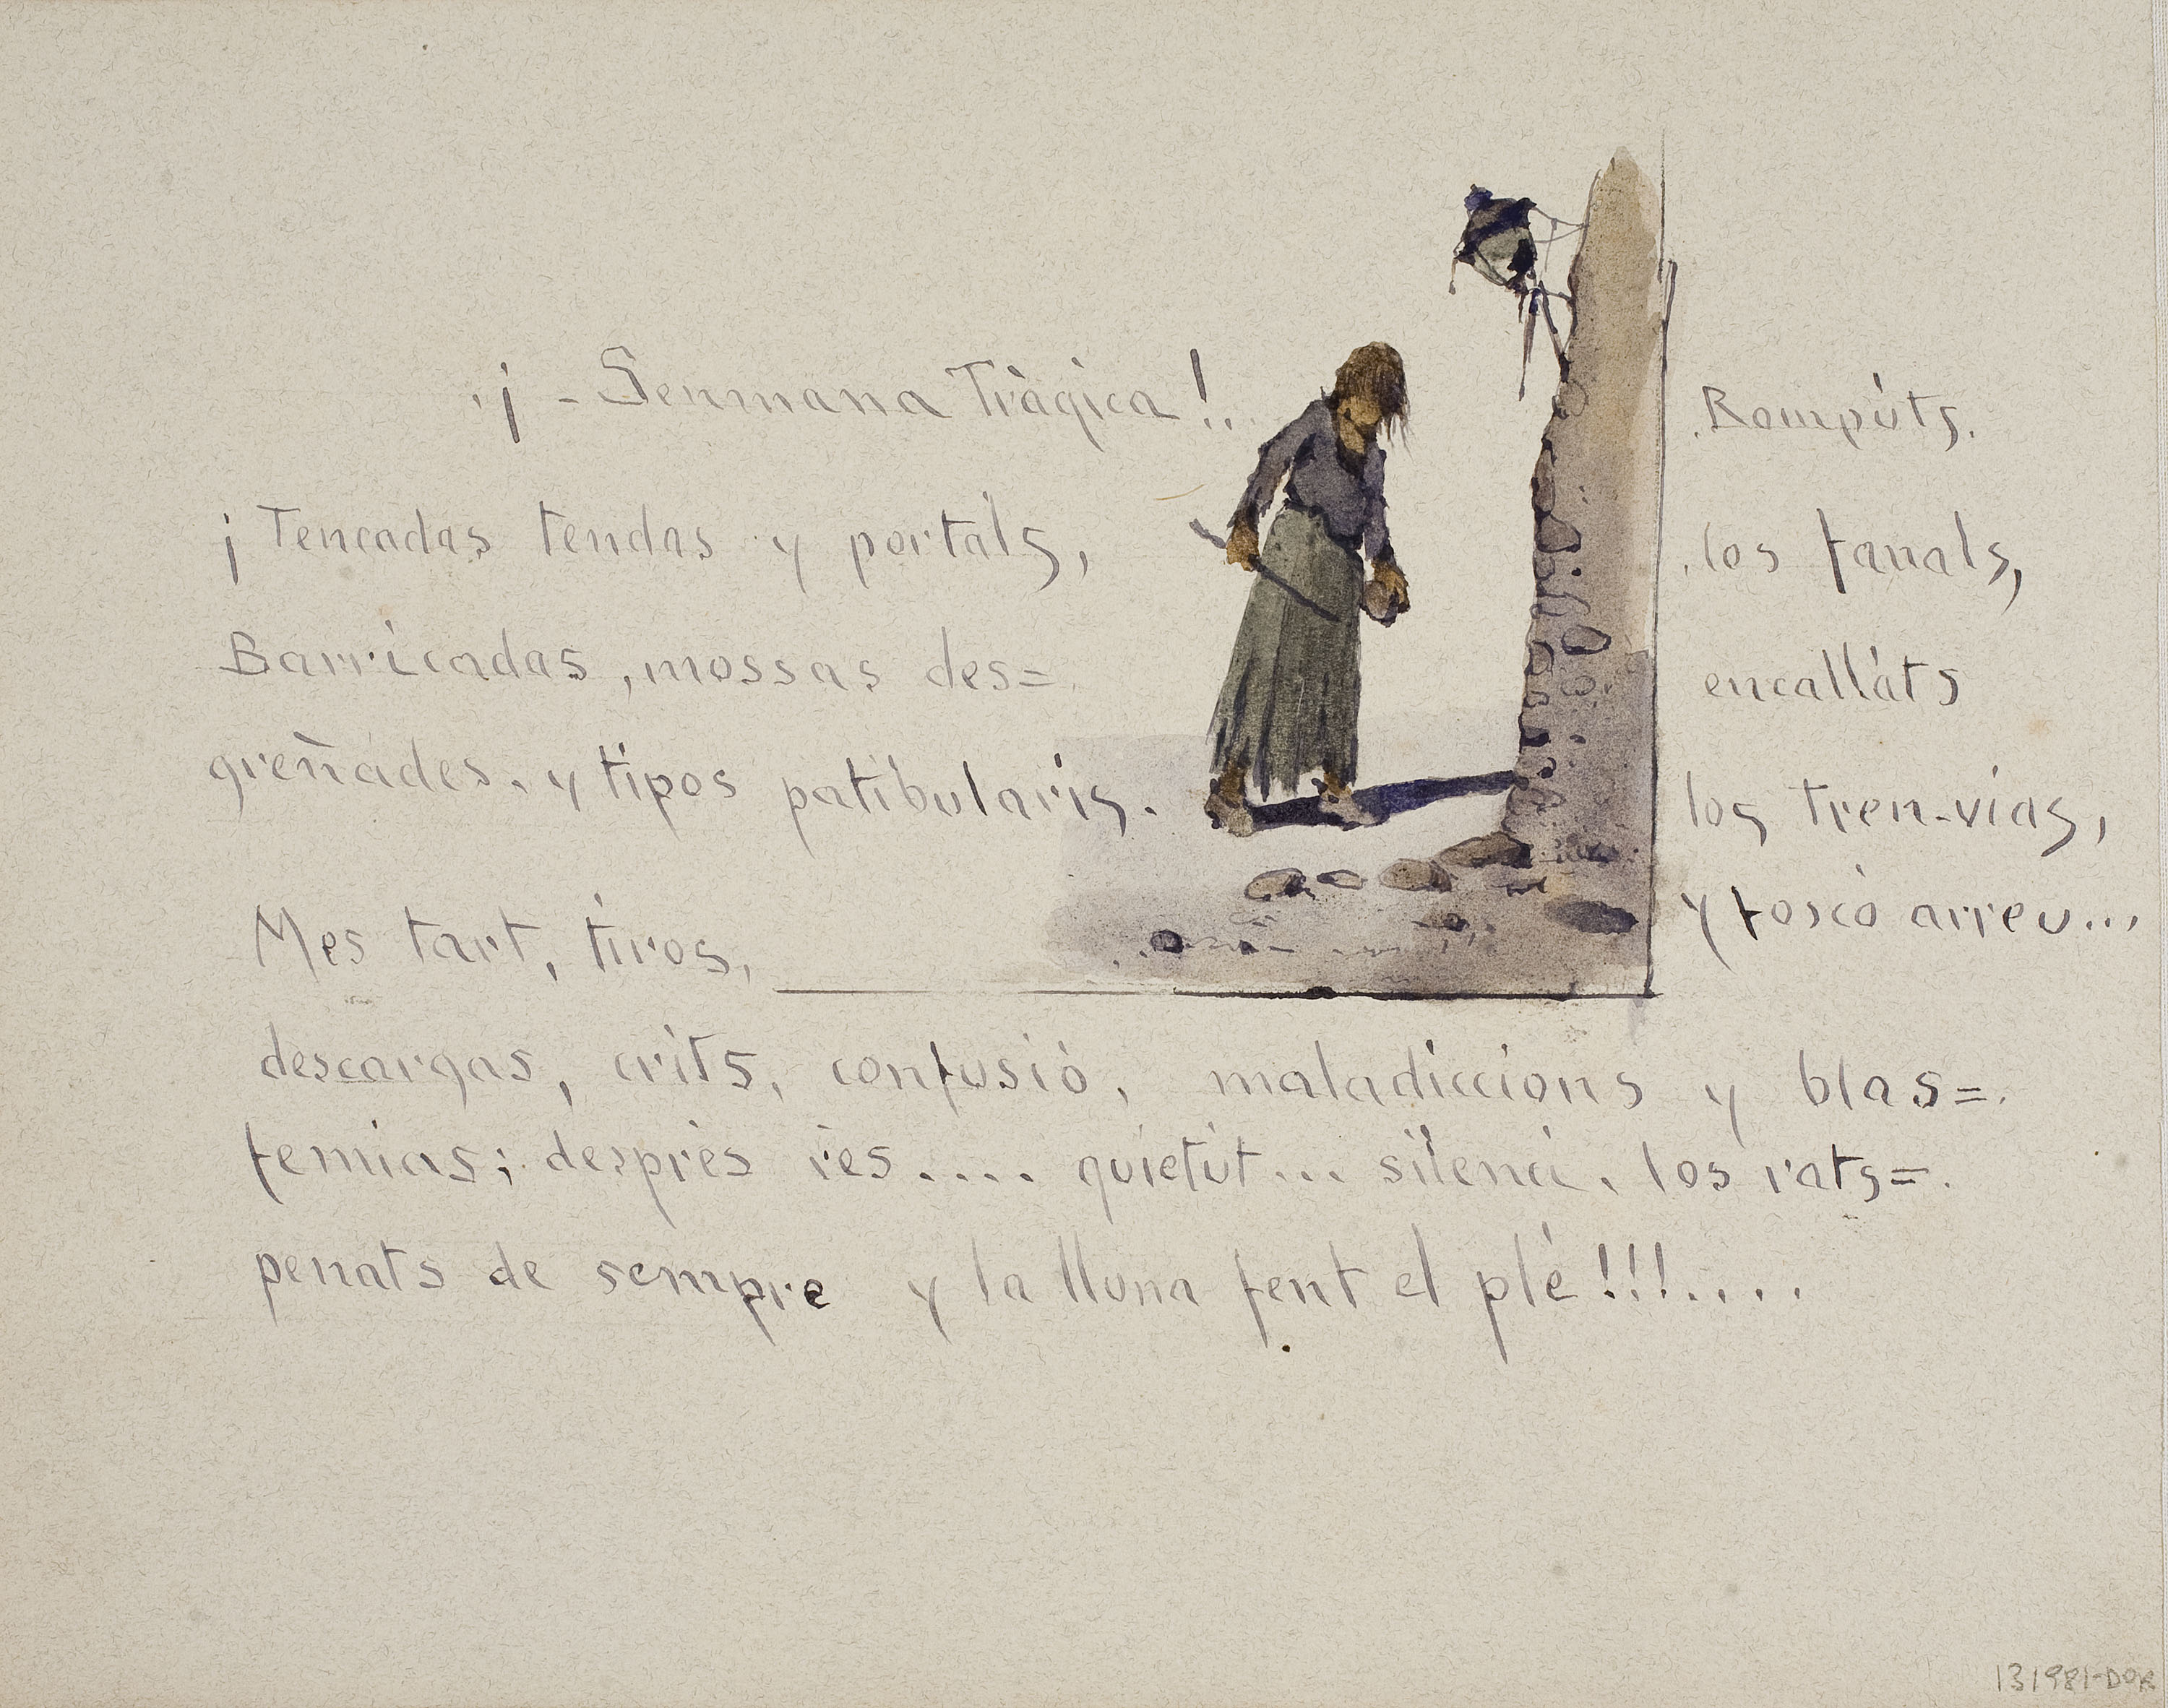 ¡ - Senmana Tràgica!..
¡Tencadas tendas y portals,
Barricadas, mossas des=
greñades. y tipos patibularis.
Rompúts.
los fanals,
encalláts
los tren-vías,
y foscó arreu...
Mes tart, tiros,
descargas, crits, confusió, maladiccions y blas=
femias; desprès rès.... quietút... silenci. los rats=
penats de sempre y la lluna fent el plé!!!....
131981-DOR